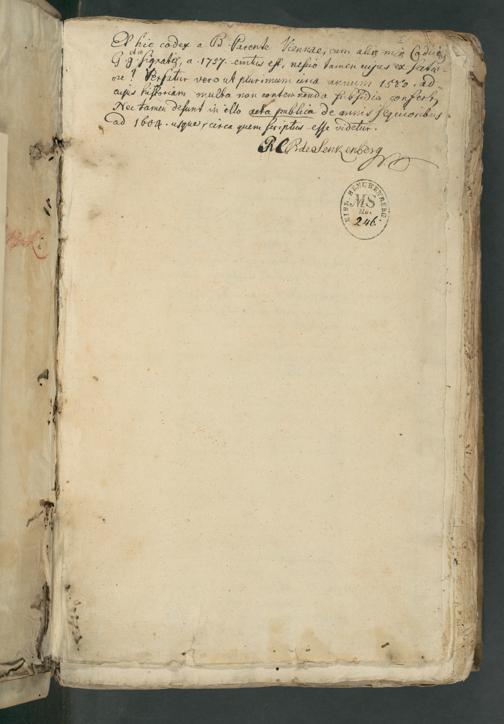 Et hic codex a B. Parente Viennae, cum aliis mea Codic.
G signatis, a 1757. emtus est, nescio tamen cujus ex
Versatur vero ut plurimum circa annum 1580. ad
cujus historiam multa non contemnenda subsidia confert,
Nec tamen desunt in illo acta publica de annis sequioribus
ad 1604. usque, circa quem scriptus esse videtur.
R C R de Senkenberg
BIBL. SENCKENBERG.
MS
No.
246.